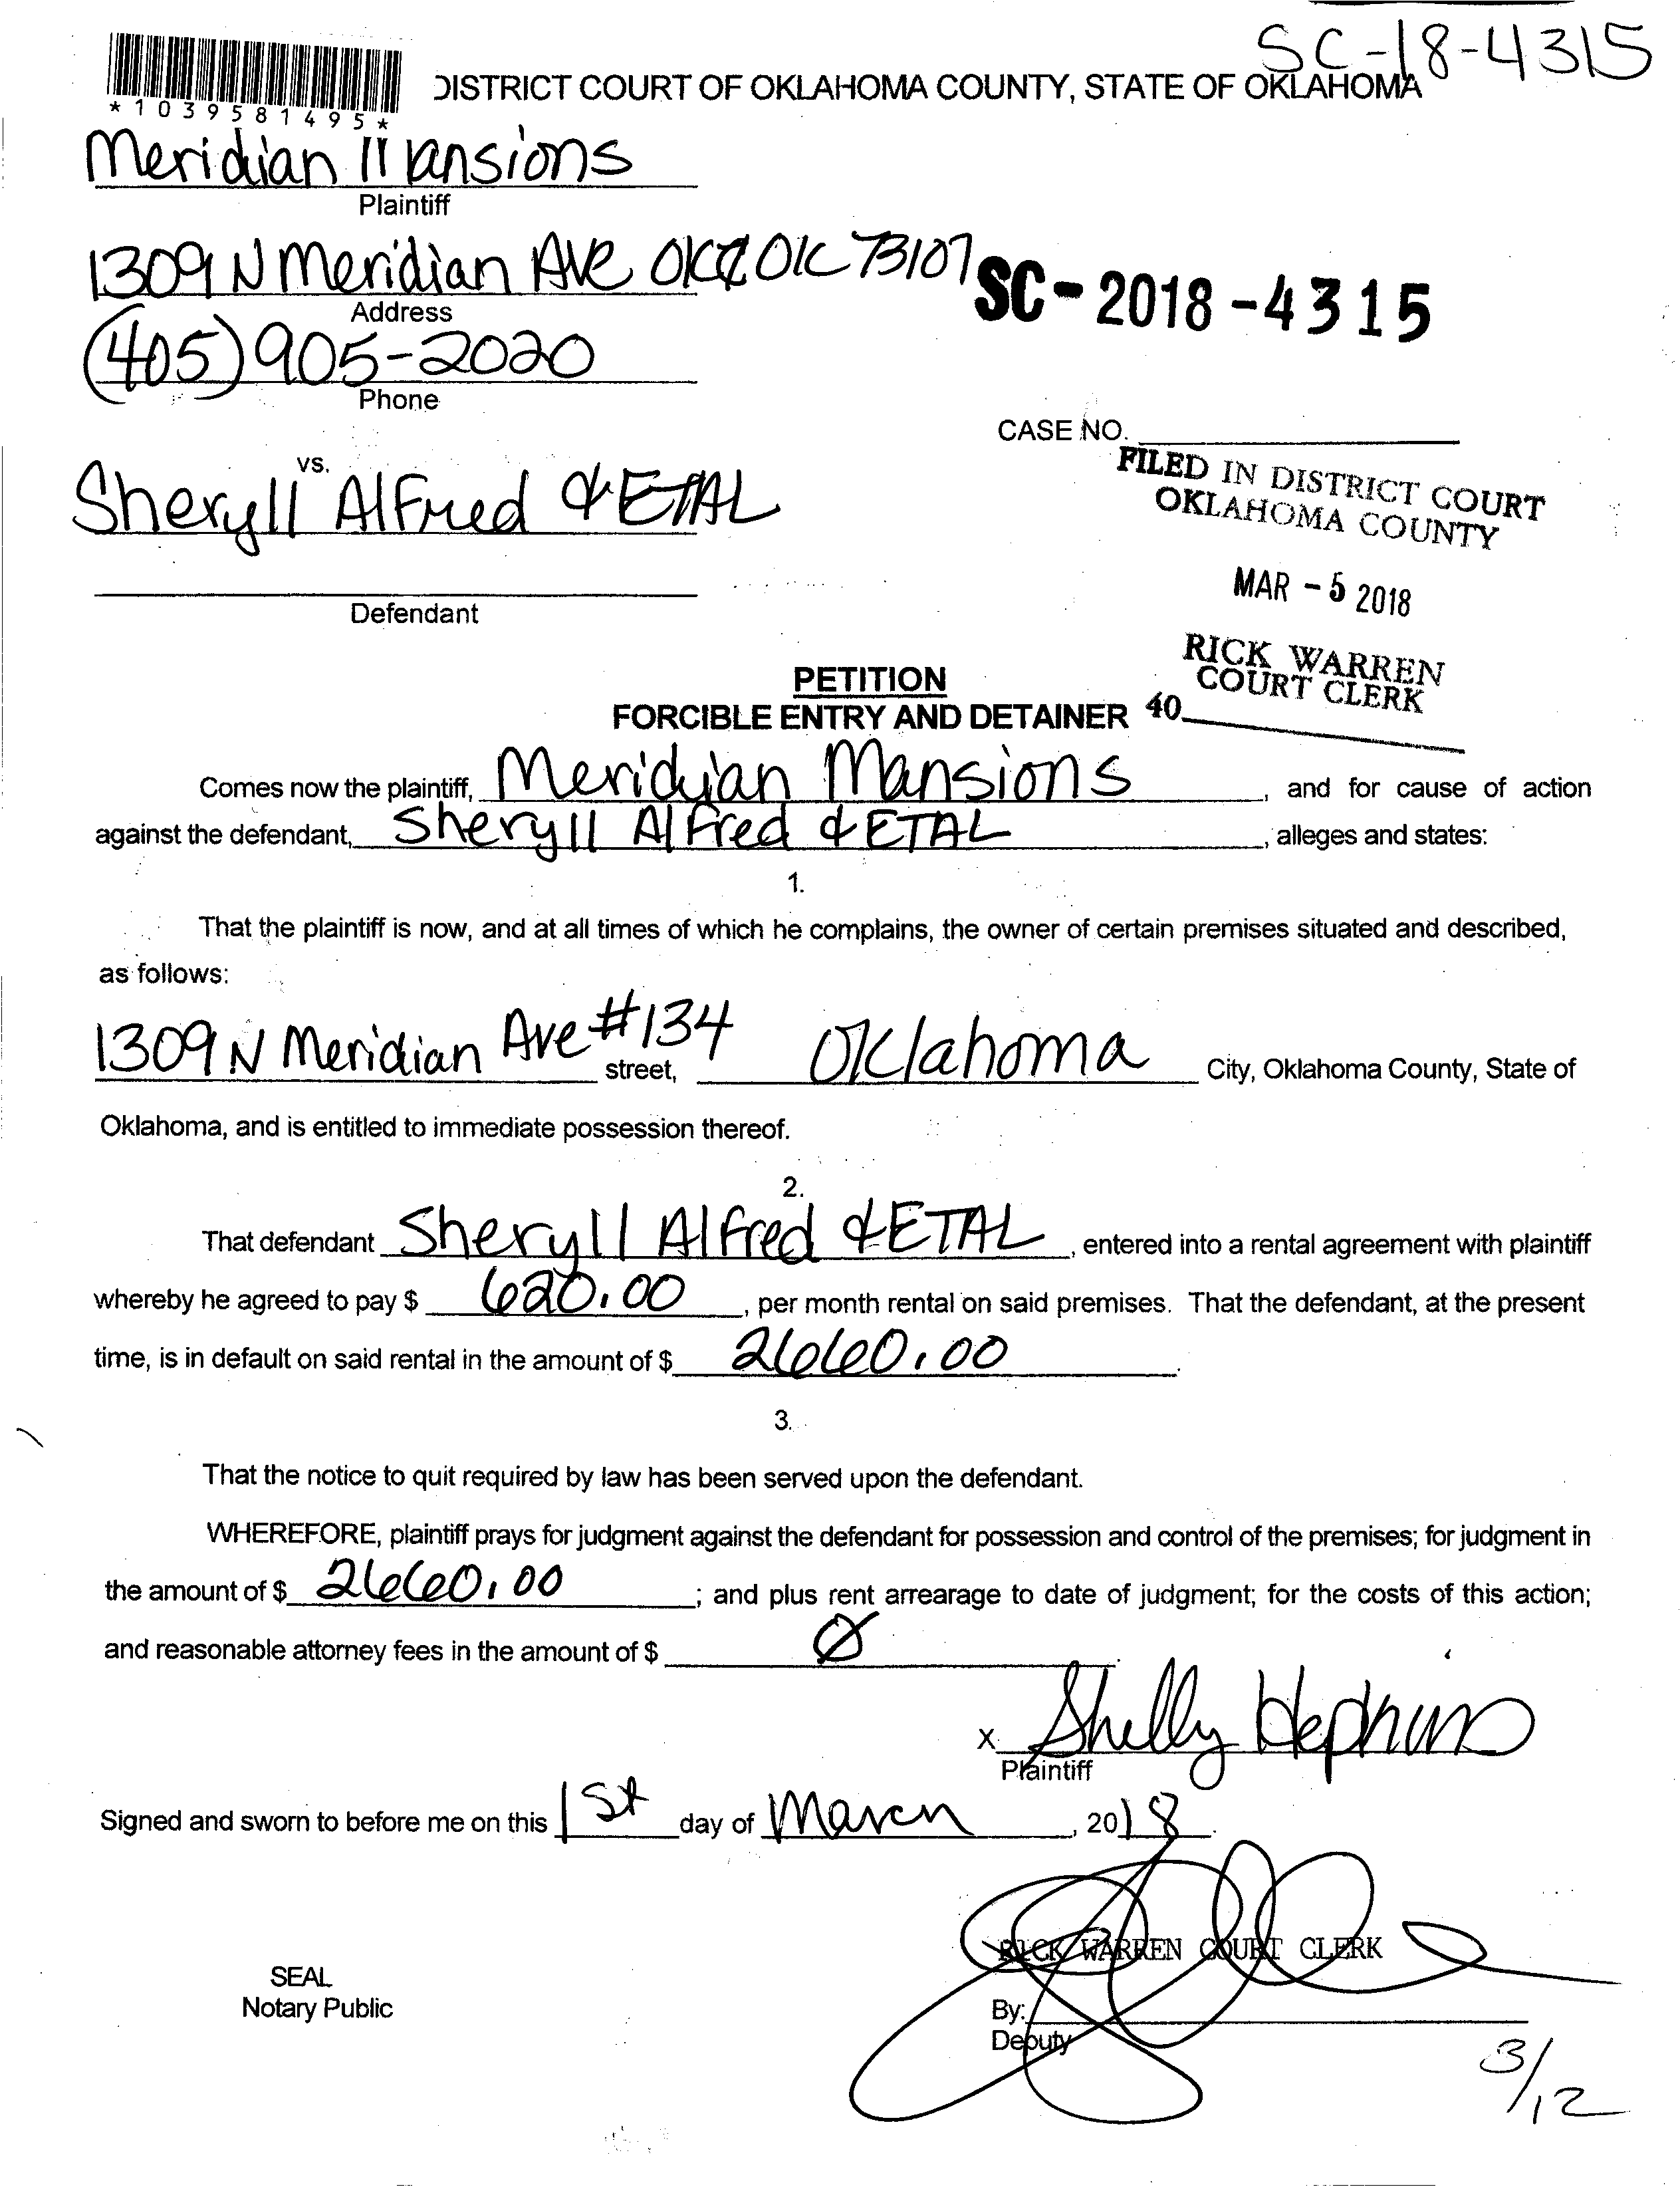 SC-18-4315
DISTRICT COURT OF OKLAHOMA COUNTY, STATE OF OKLAHOMA
*1039581495*
Meridian Mansions
Plaintiff
1309 N Meridian Ave OKC OK 73107
SC-2018-4315
Address
(405) 905-2020
Phone
CASE NO.
vs.
Sheryll Alfred & ETAL
FILED IN DISTRICT COURT
OKLAHOMA COUNTY
MAR - 5 2018
Defendant
RICK WARREN
COURT CLERK
40
PETITION
FORCIBLE ENTRY AND DETAINER
Comes now the plaintiff, Meridian Mansions, and for cause of action
against the defendant, Sheryll Alfred & ETAL, alleges and states:
1.
That the plaintiff is now, and at all times of which he complains, the owner of certain premises situated and described,
as follows:
1309 N Meridian Ave #134 street, Oklahoma City, Oklahoma County, State of
Oklahoma, and is entitled to immediate possession thereof.
2.
That defendant Sheryll Alfred & ETAL, entered into a rental agreement with plaintiff
whereby he agreed to pay $ 620.00, per month rental on said premises. That the defendant, at the present
time, is in default on said rental in the amount of $ 2660.00.
3.
That the notice to quit required by law has been served upon the defendant.
WHEREFORE, plaintiff prays for judgment against the defendant for possession and control of the premises; for judgment in
the amount of $ 2660.00; and plus rent arrearage to date of judgment; for the costs of this action;
and reasonable attorney fees in the amount of $ Ø.
X Shelly
Plaintiff
Signed and sworn to before me on this 1st day of March, 2018.
RICK WARREN COURT CLERK
SEAL
Notary Public
By:
Deputy
3/12